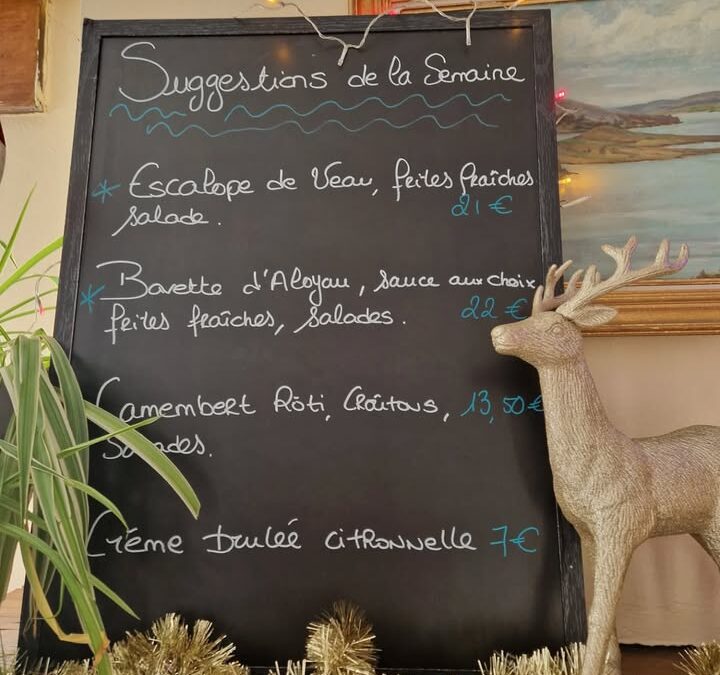 Suggestions de la Semaine
* Escalope de Veau, frites fraîches
salade. 21 €
* Bavette d'Aloyau, sauce aux choix
frites fraîches, salades. 22 €
Camembert Rôti, Croûtons, 13,50€
Salades.
Crème brulée citronnelle 7€